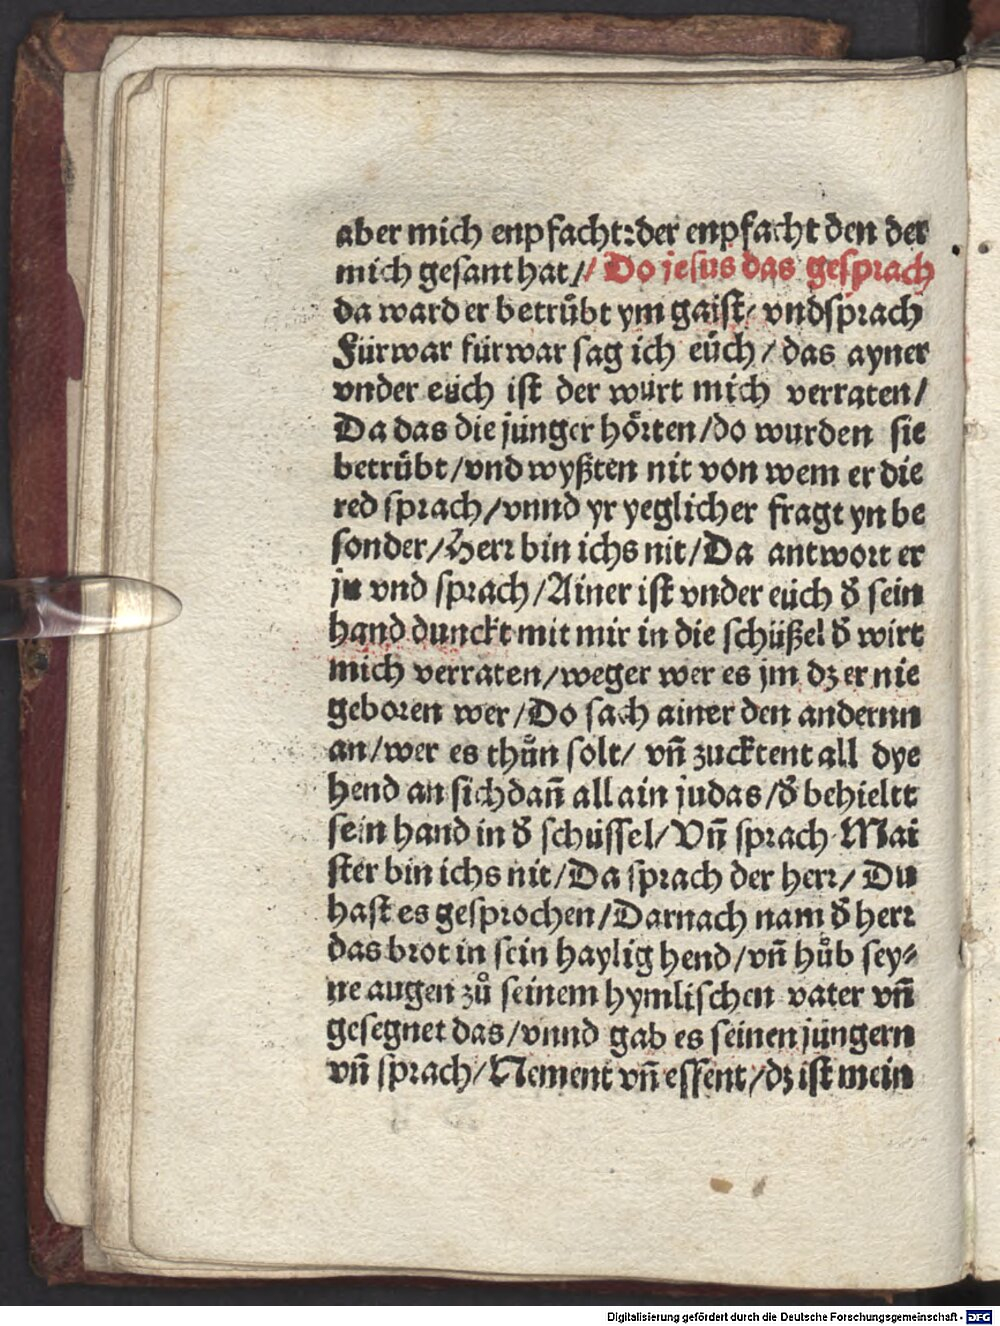 aber mich enpfacht:der enpfacht den der
mich gesant hat// Do jesus das gesprach
da ward er betrůbt ym gaist/ vndsprach
Fürwar fürwar sag ich eüch/ das ayner
vnder eüch ist der wurt mich verraten/
Da das die junger hörten/do wurden sie
betrůbt/vnd wyßten nit von wem er die
red sprach/vnnd yr yeglicher fragt yn be
sonder/Herr bin ichs nit/Da antwort er
jn vnd sprach/Ainer ist vnder eüch đ sein
hand dunckt mit mir in die schüßel đ wirt
mich verraten/weger wer es jm dz er nie
geboren wer/Do sach ainer den andernn
an/wer es thůn solt/ vñ zucktent all dye
hend an sich dañ allain judas/đ behieltt
sein hand in đ schüssel/Vñ sprach Mai
ster bin ichs nit/Da sprach der herr/ Du
hast es gesprochen/Darnach nam đ herr
das brot in sein haylig hend/vñ hůb sey⸗
ne augen zů seinem hymlischen vater vñ
gesegnet das/vnnd gab es seinen jüngern
vñ sprach/Nement vñ essent/dz ist mein
Digitalisierung gefördert durch die Deutsche Forschungsgemeinschaft - DFG